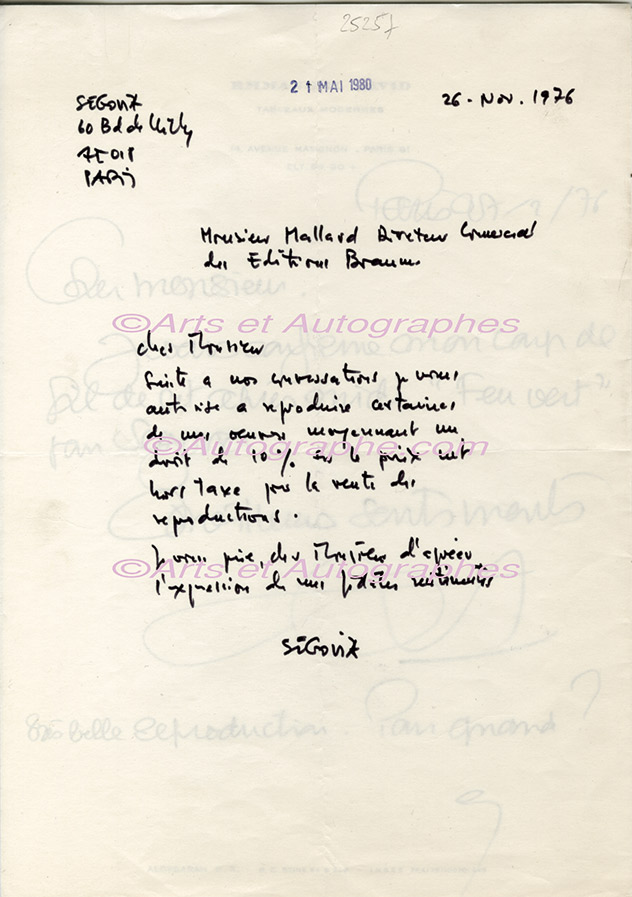 25257
21 MAI 1980
26. Nov. 1976
SEGOVIA
60 Bd de Clichy
75018
PARIS
Monsieur Mallard Directeur Commercial
des Editions Braun
©Arts et Autographes
cher Monsieur
Suite a nos conversations je vous
autorise a reproduire certaines
de mes oeuvres moyennant un
©Autographe.com
droit de 10% sur le prix net
hors taxe pour la vente des
reproductions.
Je vous prie, cher Monsieur d'agréer
©Arts et Autographes
l'expression de mes sentiments
SEGOVIA
Très belle reproduction. Pour quand ?